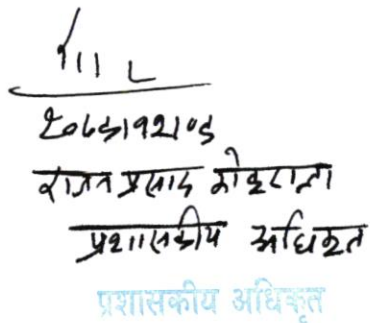 २०७३।१२।०३
राजन प्रसाद कोइराला
प्रशासकीय अधिकृत
प्रशासकीय अधिकृत